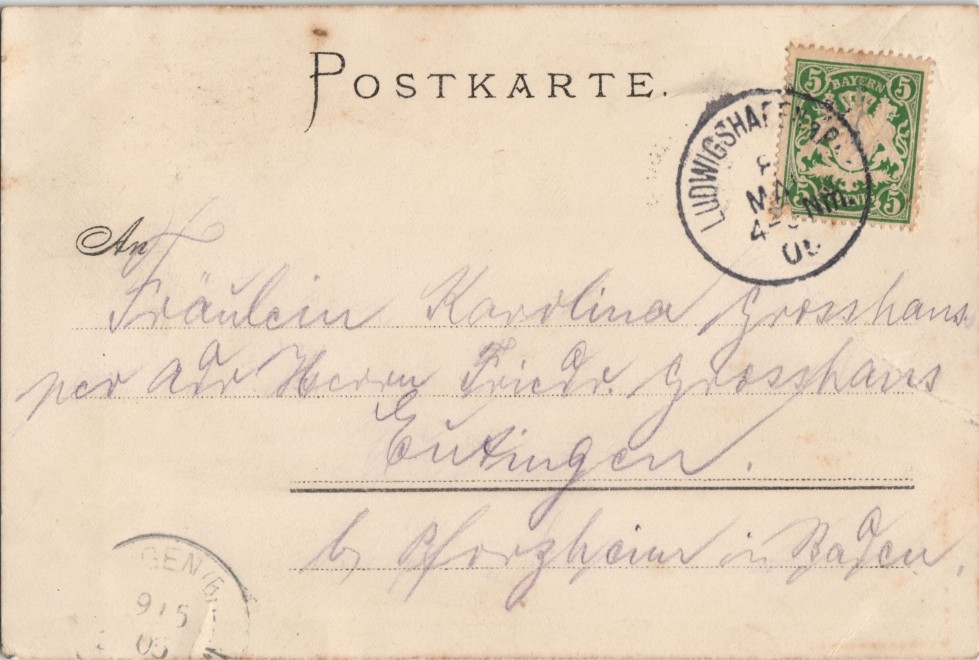 POSTKARTE.
5 BAYERN 5
5 5
LUDWIGSHAFEN a/Rh.
4-5 Nm.
An
Fräulein Karolina Grosshans
per Adr Herrn Friedr. Grosshans
Eutingen.
b/ Pforzheim in Baden.
GEN
9/5